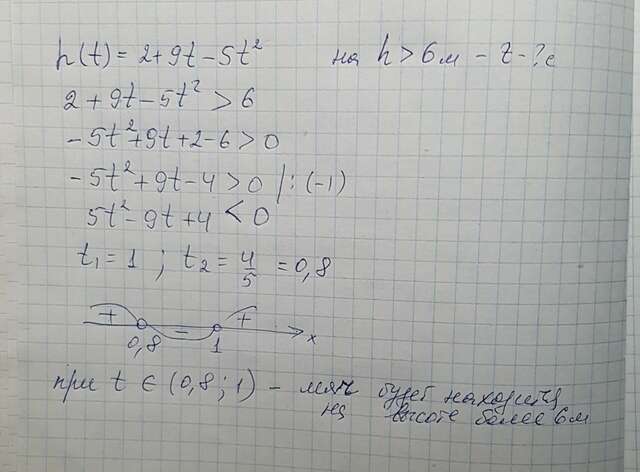 h(t) = 2+9t-5t² на h > 6м - t - ? с
2+9t-5t² > 6
-5t²+9t+2-6>0
-5t²+9t-4>0 /:(-1)
5t²-9t+4 < 0
t₁=1 ; t₂ = 4/5 = 0,8
+ - +
0,8 1 x
при t ∈ (0,8 ; 1) - мяч будет находится
на высоте более 6м